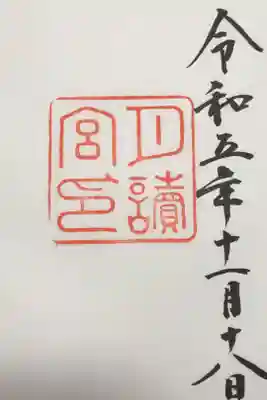 令和五年十一月十八日
月讀
宮印